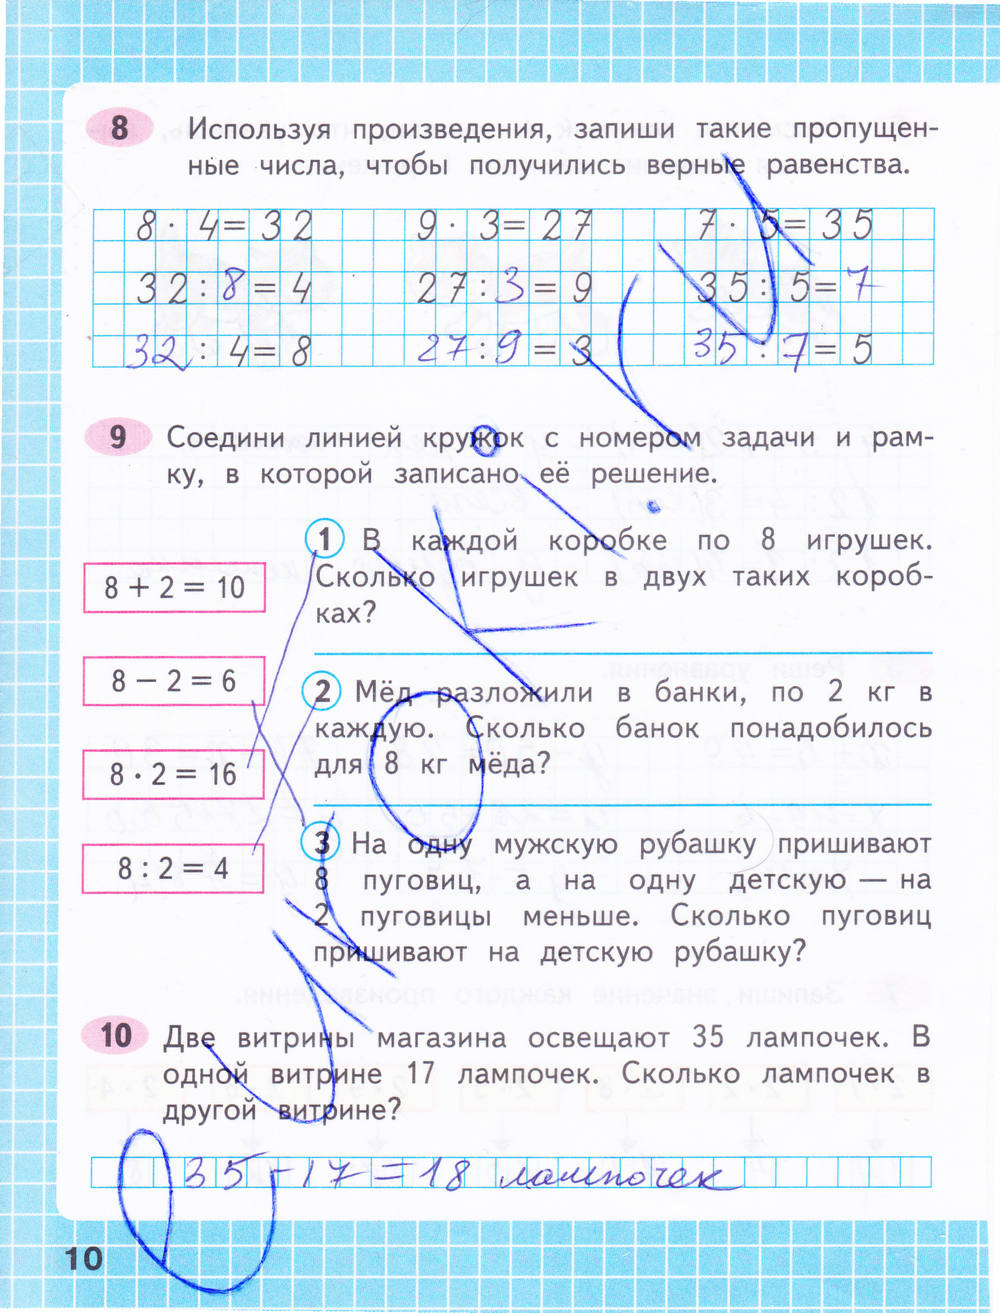 8 Используя произведения, запиши такие пропущен-
ные числа, чтобы получились верные равенства.
8 · 4 = 32 9 · 3 = 27 7 · 5 = 35
32 : 8 = 4 27 : 3 = 9 35 : 5 = 7
32 : 4 = 8 27 : 9 = 3 35 : 7 = 5
9 Соедини линией кружок с номером задачи и рам-
ку, в которой записано её решение.
8 + 2 = 10
8 − 2 = 6
8 · 2 = 16
8 : 2 = 4
1 В каждой коробке по 8 игрушек.
Сколько игрушек в двух таких короб-
ках?
2 Мёд разложили в банки, по 2 кг в
каждую. Сколько банок понадобилось
для 8 кг мёда?
3 На одну мужскую рубашку пришивают
8 пуговиц, а на одну детскую — на
2 пуговицы меньше. Сколько пуговиц
пришивают на детскую рубашку?
10 Две витрины магазина освещают 35 лампочек. В
одной витрине 17 лампочек. Сколько лампочек в
другой витрине?
35 - 17 = 18 лампочек
10